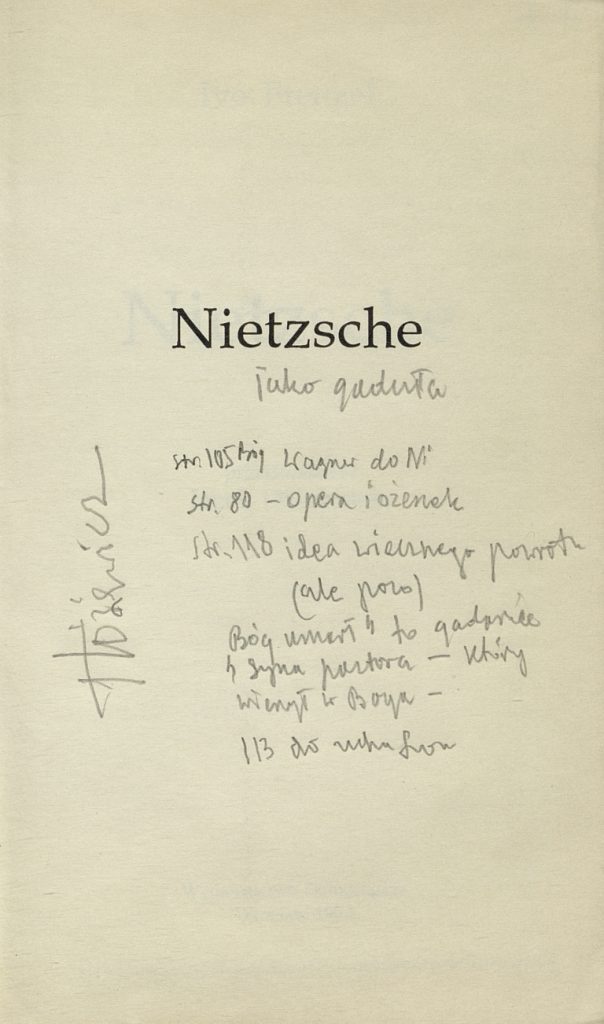 Nietzsche
jako gaduła
str. 105 Wagner do Ni
str. 80 – opera i ożenek
str. 118 idea wiecznego powrotu
(ale
Bóg umarł" to gadanie
syna pastora – który
wierzył w Boga –
113 do
Różewicz